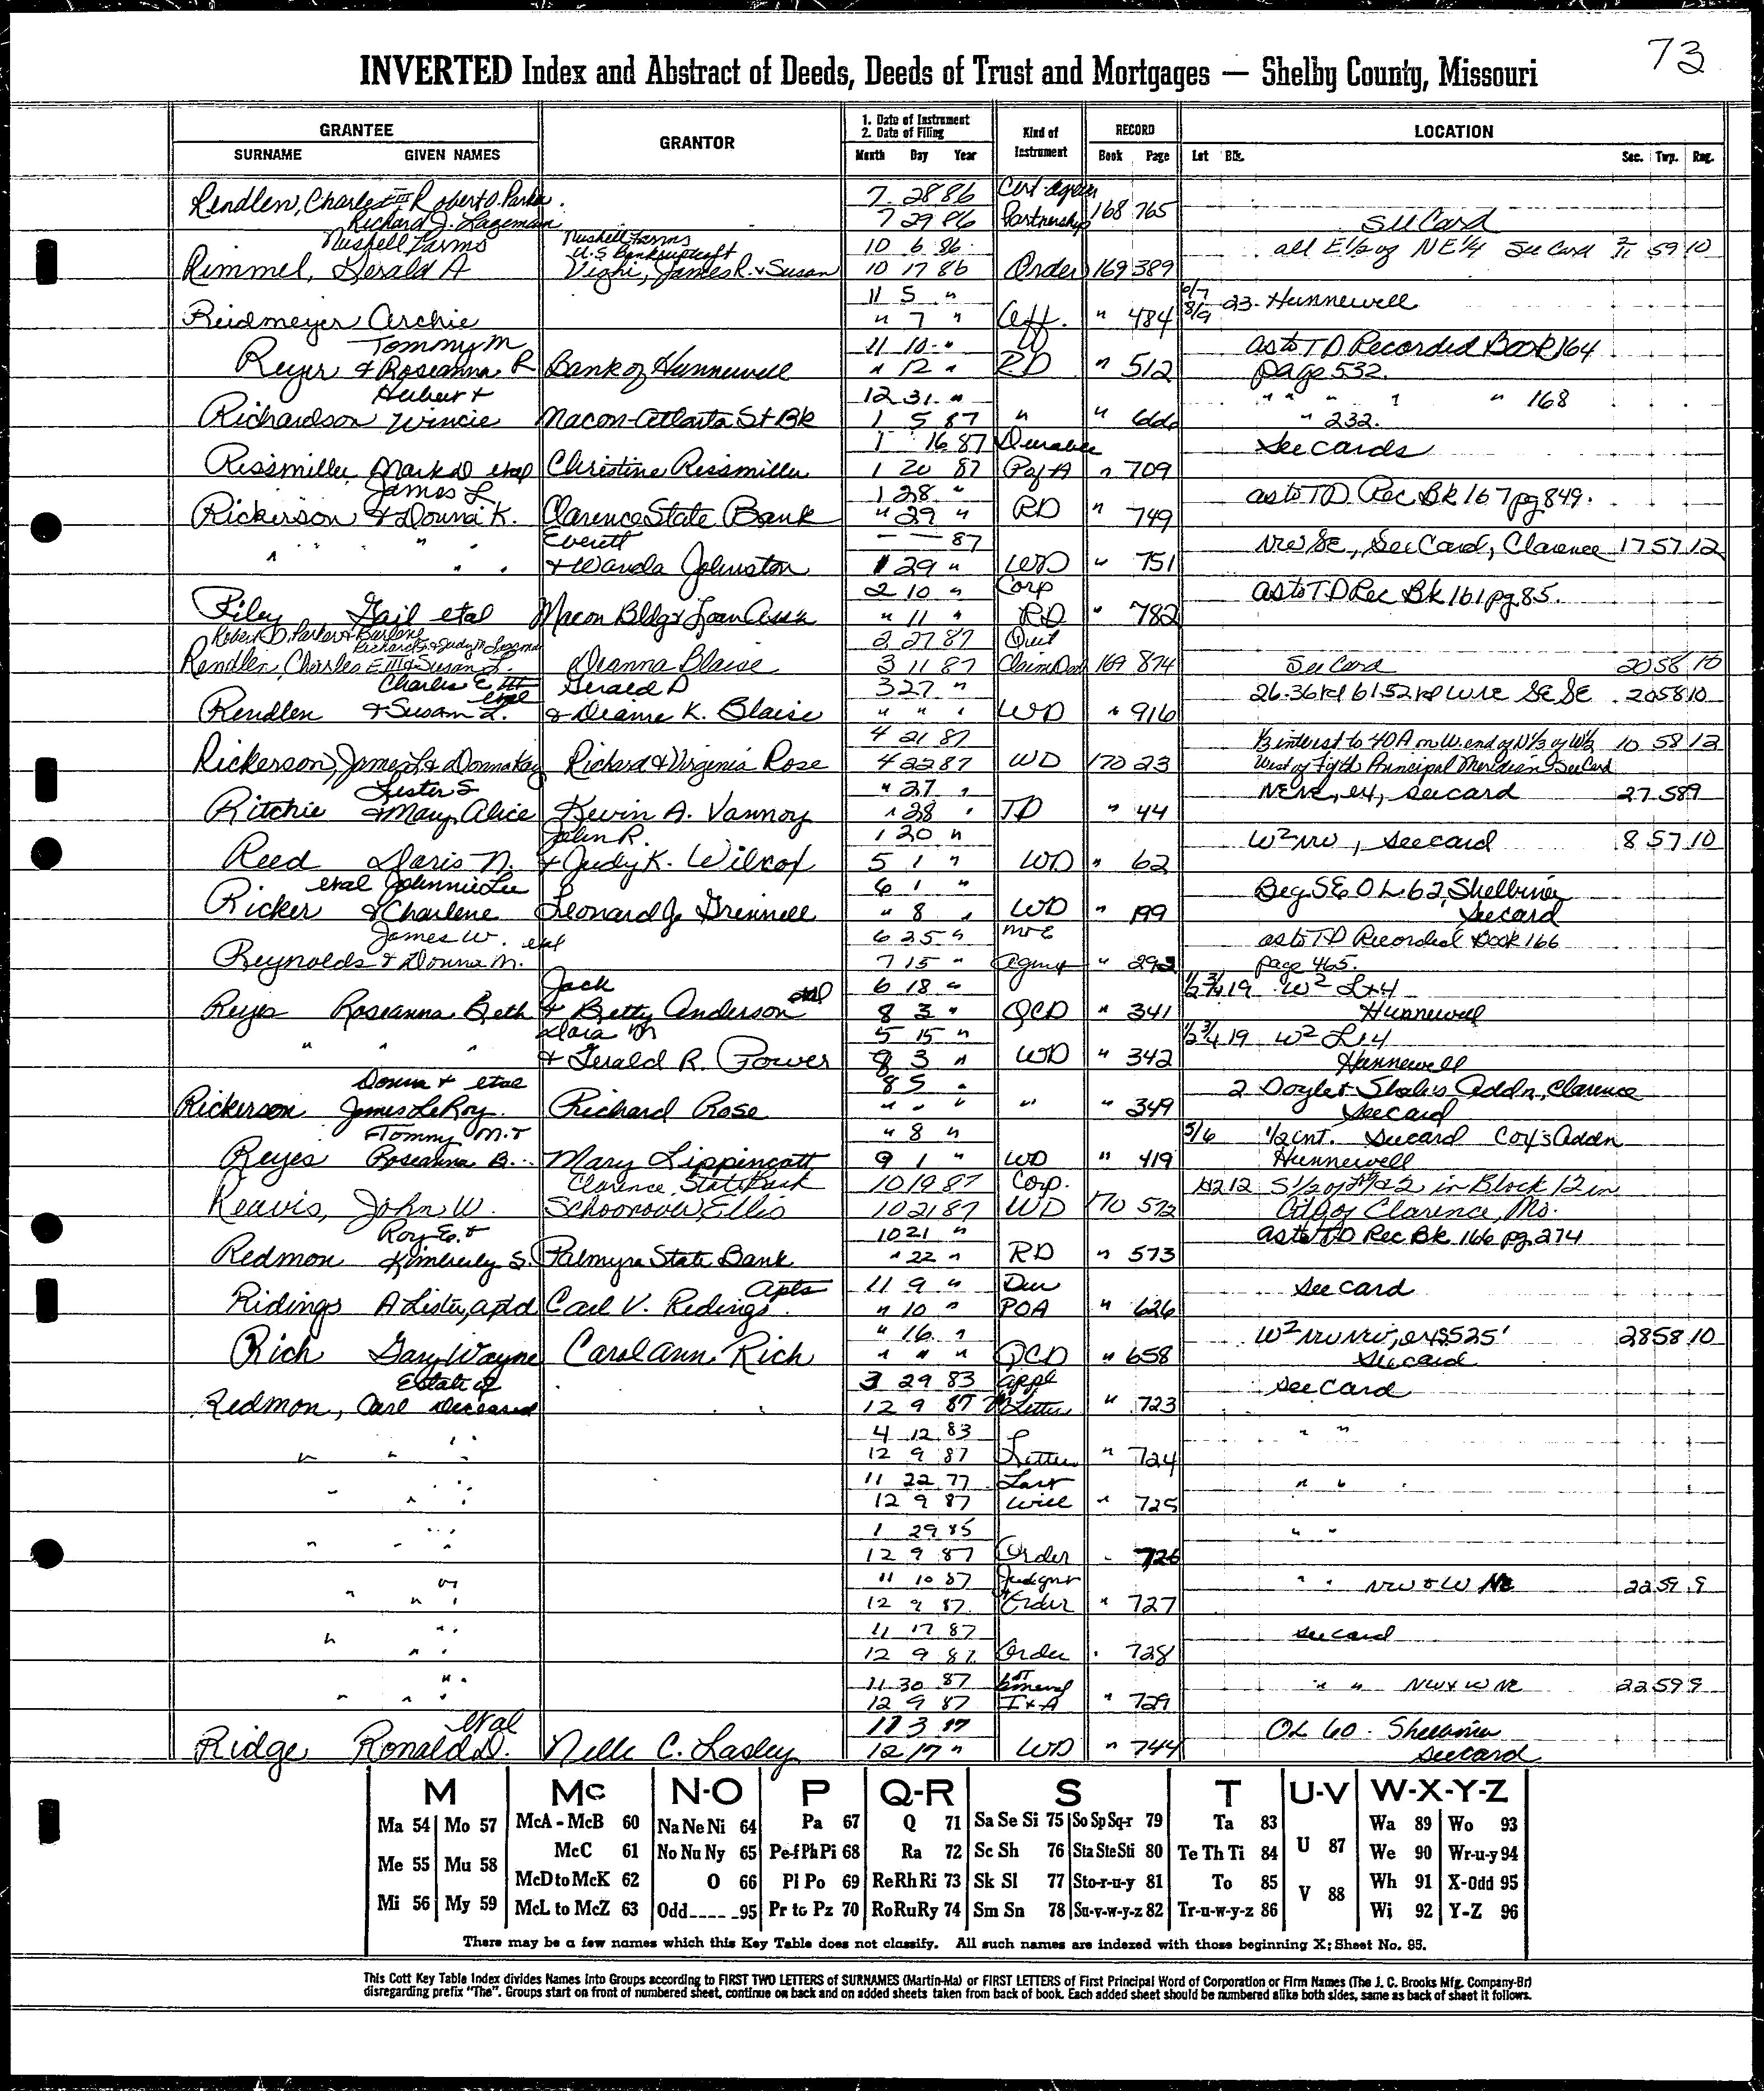 73
INVERTED Index and Abstract of Deeds, Deeds of Trust and Mortgages — Shelby County, Missouri
GRANTEE GRANTOR 1. Date of Instrument 2. Date of Filing Kind of Instrument RECORD LOCATION
SURNAME GIVEN NAMES Month Day Year Book Page Lot Blk. Sec. Twp. Rng.
Rendlen, Charles III Robert D. Parker 7 28 86 Cert
Richard J. Lageman 7 29 86 Partnership 168 765 See Card
Nushell Farms Nushell Farms U.S. 10 6 86 all E½ of NE¼ See Card 59 10
Rimmel, Gerald A James R. & Susan 10 17 86 Order 169 389
11 5 " 23 Hunnewell
Reidmeyer Archie " 7 " Aff. " 484
Tommy M 11 10 " as to TD Recorded Book 164
Reyer & Roseanna R Bank of Hunnewell " 12 " RD " 512 page 532.
Hubert & 12 31 " " " " " " 168
Richardson Wincie Macon-Atlanta St Bk 1 5 87 " " 666 " 232.
1 16 87 Durable See cards
Rissmiller Mark D etal Christine Rissmiller 1 20 87 P of A " 709
James L 1 28 " as to TD Rec Bk 167 pg 849.
Rickerson & Donna K. Clarence State Bank " 29 " RD " 749
Everett — — 87 NW SE, See Card, Clarence 17 57 12
" " " " & Wanda Johnston 1 29 " WD " 751
2 10 " Corp as to TD Rec Bk 161 pg 85.
Riley Gail etal Macon Bldg & Loan Ass'n " 11 " RD " 782
Robert D. Parker & Barlene Richard J. & Judy 2 27 87 Quit
Rendlen, Charles E III & Susan L. Deanna Blaise 3 11 87 Claim Deed 169 874 See Card 20 58 10
Charles E III etal Gerald D 3 27 " SE SE 20 58 10
Rendlen & Susan L. & Diane K. Blaise " " " WD " 916
4 21 87 ½ interest to 40A on W. end of N½ of W½ 10 58 12
Rickerson, James L & Donna Kay Richard & Virginia Rose 4 22 87 WD 170 23 West of Fifth Principal Meridian See Card
Lester S " 27 " NE NE, ex, see card 27 58 9
Ritchie & Mary Alice Kevin A. Vannoy " 28 " TD " 44
John R. 1 20 " W² NW, see card 8 57 10
Reed Doris N. & Judy K. Wilcox 5 1 " WD " 62
etal Johnnie Lee 6 1 " Beg SE OL 62, Shelbina
Ricker & Charlene Leonard J. Grinnell " 8 " WD " 199 See card
James W. etal 6 25 " as to TD Recorded Book 166
Reynolds & Donna M. 7 15 " Agmt " 292 page 465.
Jack 6 18 " 19 W² L 4
Reyes Roseanna Beth & Betty Anderson etal 8 3 " QCD " 341 Hunnewell
Dora M 5 15 " 19 W² L 4
" " " & Gerald R. Power 8 3 " WD " 342 Hunnewell
Donna & etal 8 5 " 2 Doyle & Addn, Clarence
Rickerson James LeRoy Richard Rose " " " " " 349 See card
Tommy M. & " 8 " 5/6 ½ int. See card Cox's Addn
Reyes Roseanna B. Mary Lippincott 9 1 " WD " 419 Hunnewell
Clarence State Bank 10 19 87 Corp. S½ of 2 in Block 12 in
Reavis, John W. Schoonover, Ellis 10 21 87 WD 170 572 City of Clarence, Mo.
Roy E. & 10 21 " as to TD Rec Bk 166 pg 274
Redmon Kimberly S. Palmyra State Bank " 22 " RD " 573
11 9 " Dur See card
Ridings A Carl V. Redings " 10 " POA " 626
" 16 " W² NW NW, 28 58 10
Rich Gary Wayne Carol Ann Rich " " " QCD " 658 See card
Estate of 3 29 83 Appl See Card
Redmon, Carl Deceased 12 9 87 Letter " 723
4 12 83 " "
" " " 12 9 87 Letter " 724
11 22 77 Last " "
" " " 12 9 87 Will " 725
1 29 85 " "
" " " 12 9 87 Order " 726
11 10 87 Judgmt " " NW & W NE 22 59 9
" " " 12 9 87 Order " 727
11 17 87 See card
" " " 12 9 87 Order " 728
11 30 87 " " NW & W NE 22 59 9
" " " 12 9 87 I & A " 729
etal 11 3 87 OL 60 Shelbina
Ridge Ronald D. Nelle C. Lasley 12 17 " WD " 744 See card
M Mc N-O P Q-R S T U-V W-X-Y-Z
Ma 54 Mo 57 McA - McB 60 Na Ne Ni 64 Pa 67 Q 71 Sa Se Si 75 So Sp Sq-r 79 Ta 83 U 87 Wa 89 Wo 93
Me 55 Mu 58 McC 61 No Nu Ny 65 Pe-f Ph Pi 68 Ra 72 Sc Sh 76 Sta Ste Sti 80 Te Th Ti 84 We 90 Wr-u-y 94
McD to McK 62 O 66 Pl Po 69 Re Rh Ri 73 Sk Sl 77 Sto-r-u-y 81 To 85 V 88 Wh 91 X-Odd 95
Mi 56 My 59 McL to McZ 63 Odd____95 Pr to Pz 70 Ro Ru Ry 74 Sm Sn 78 Su-v-w-y-z 82 Tr-u-w-y-z 86 Wi 92 Y-Z 96
There may be a few names which this Key Table does not classify. All such names are indexed with those beginning X; Sheet No. 95.
This Cott Key Table Index divides Names into Groups according to FIRST TWO LETTERS of SURNAMES (Martin-Ma) or FIRST LETTERS of First Principal Word of Corporation or Firm Names (The J. C. Brooks Mfg. Company-Br)
disregarding prefix "The". Groups start on front of numbered sheet, continue on back and on added sheets taken from back of book. Each added sheet should be numbered alike both sides, same as back of sheet it follows.